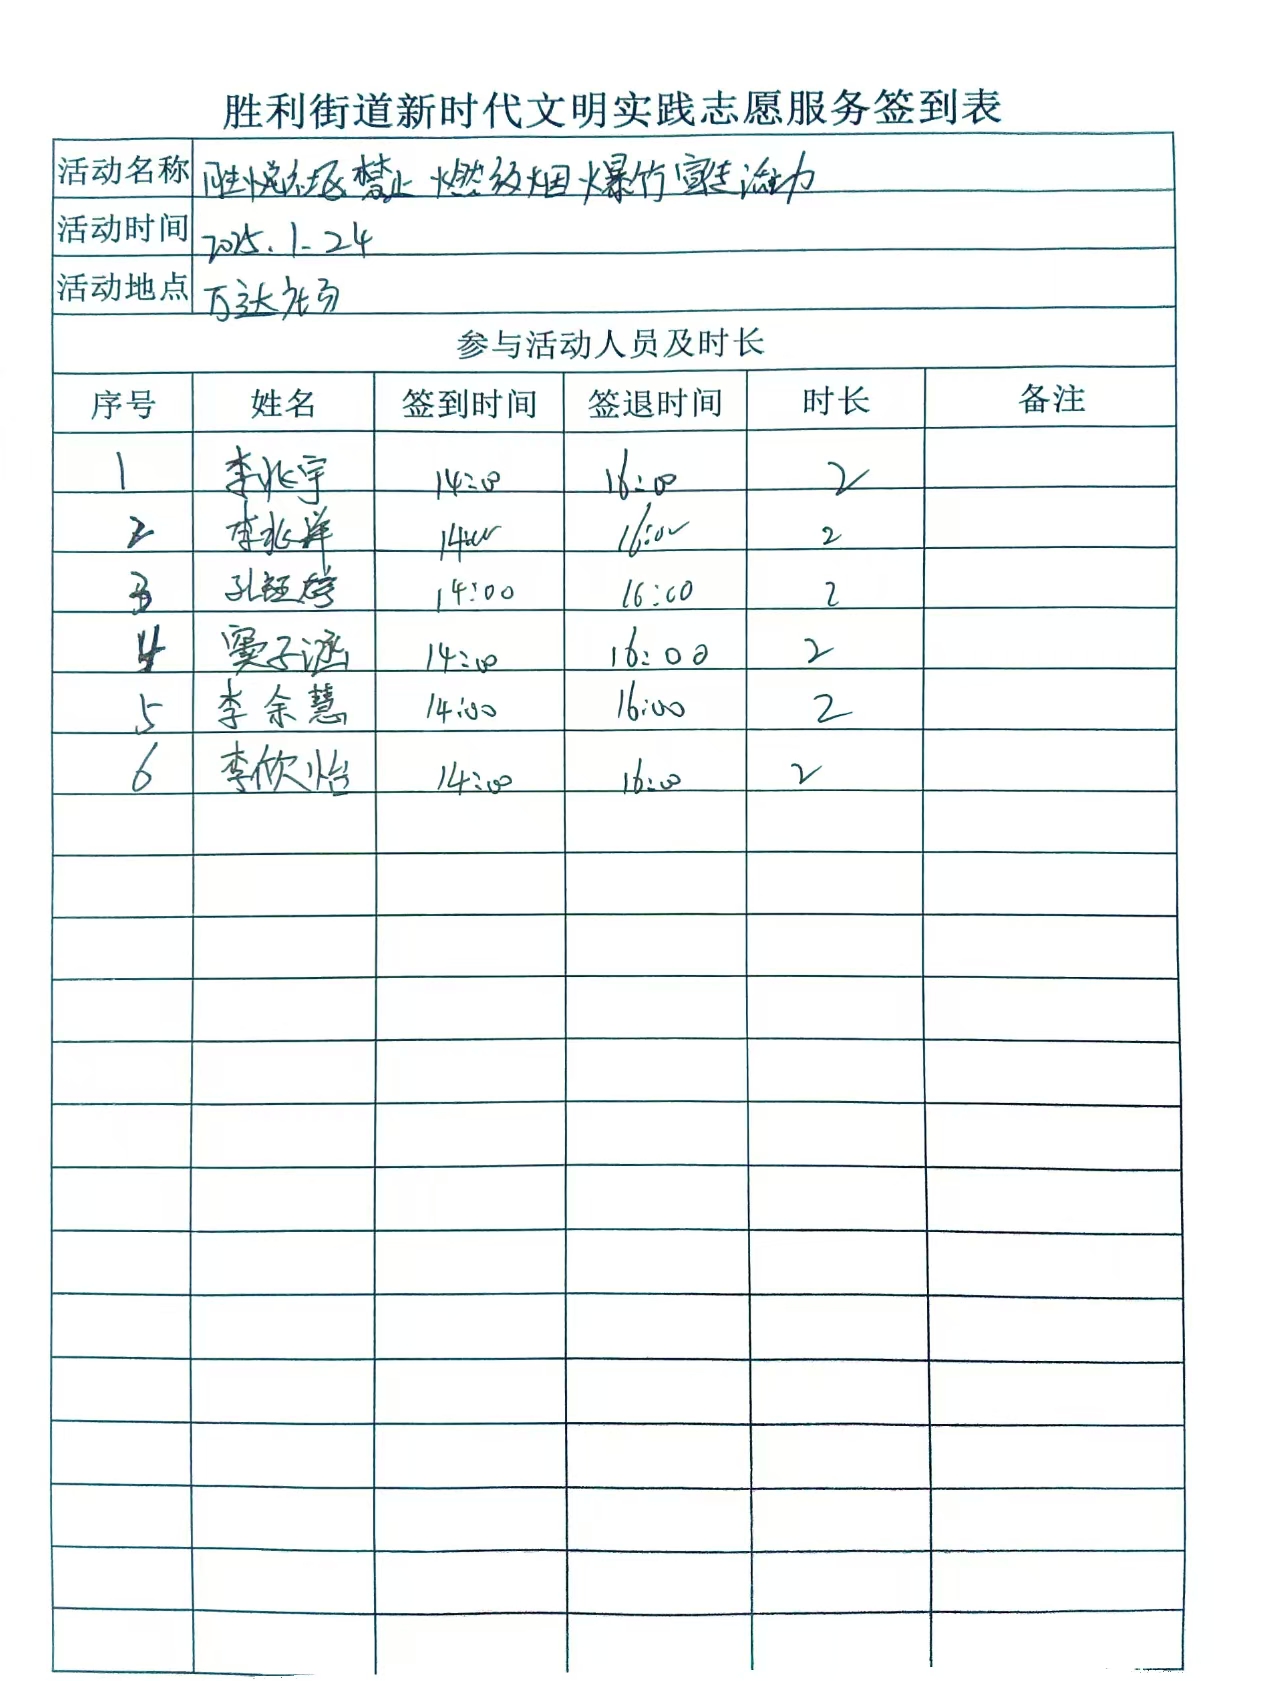 胜利街道新时代文明实践志愿服务签到表
活动名称 胜悦社区禁止燃放烟爆竹宣传活动
活动时间 2025.1.24
活动地点 万达广场
参与活动人员及时长
序号 姓名 签到时间 签退时间 时长 备注
1 李兆宇 14:00 16:00 2
2 李兆洋 14:00 16:00 2
3 孔钰婷 14:00 16:00 2
4 窦子涵 14:00 16:00 2
5 李余慧 14:00 16:00 2
6 李欣怡 14:00 16:00 2